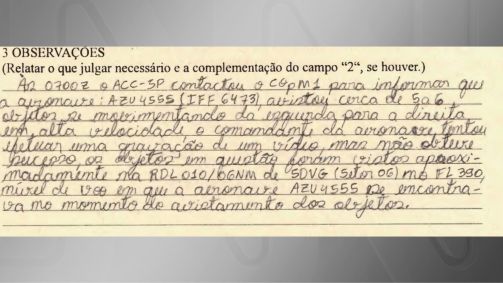 3 OBSERVAÇÕES
(Relatar o que julgar necessário e a complementação do campo “2“, se houver.)
Às 0700Z o ACC-SP contactou o COpM1 para informar que
a aeronave: AZU4555 (IFF 6473), avistou cerca de 5 a 6
objetos se movimentando da esquerda para a direita
em alta velocidade, o comandante da aeronave tentou
efetuar uma gravação de um vídeo, mas não obteve
sucesso os objetos em questão foram vistos aproxi-
madamente na RDL 010/06NM de SDVG (Setor 06) no FL 390,
nível de voo em que a aeronave AZU4555 se encontra-
va no momento do avistamento dos objetos.